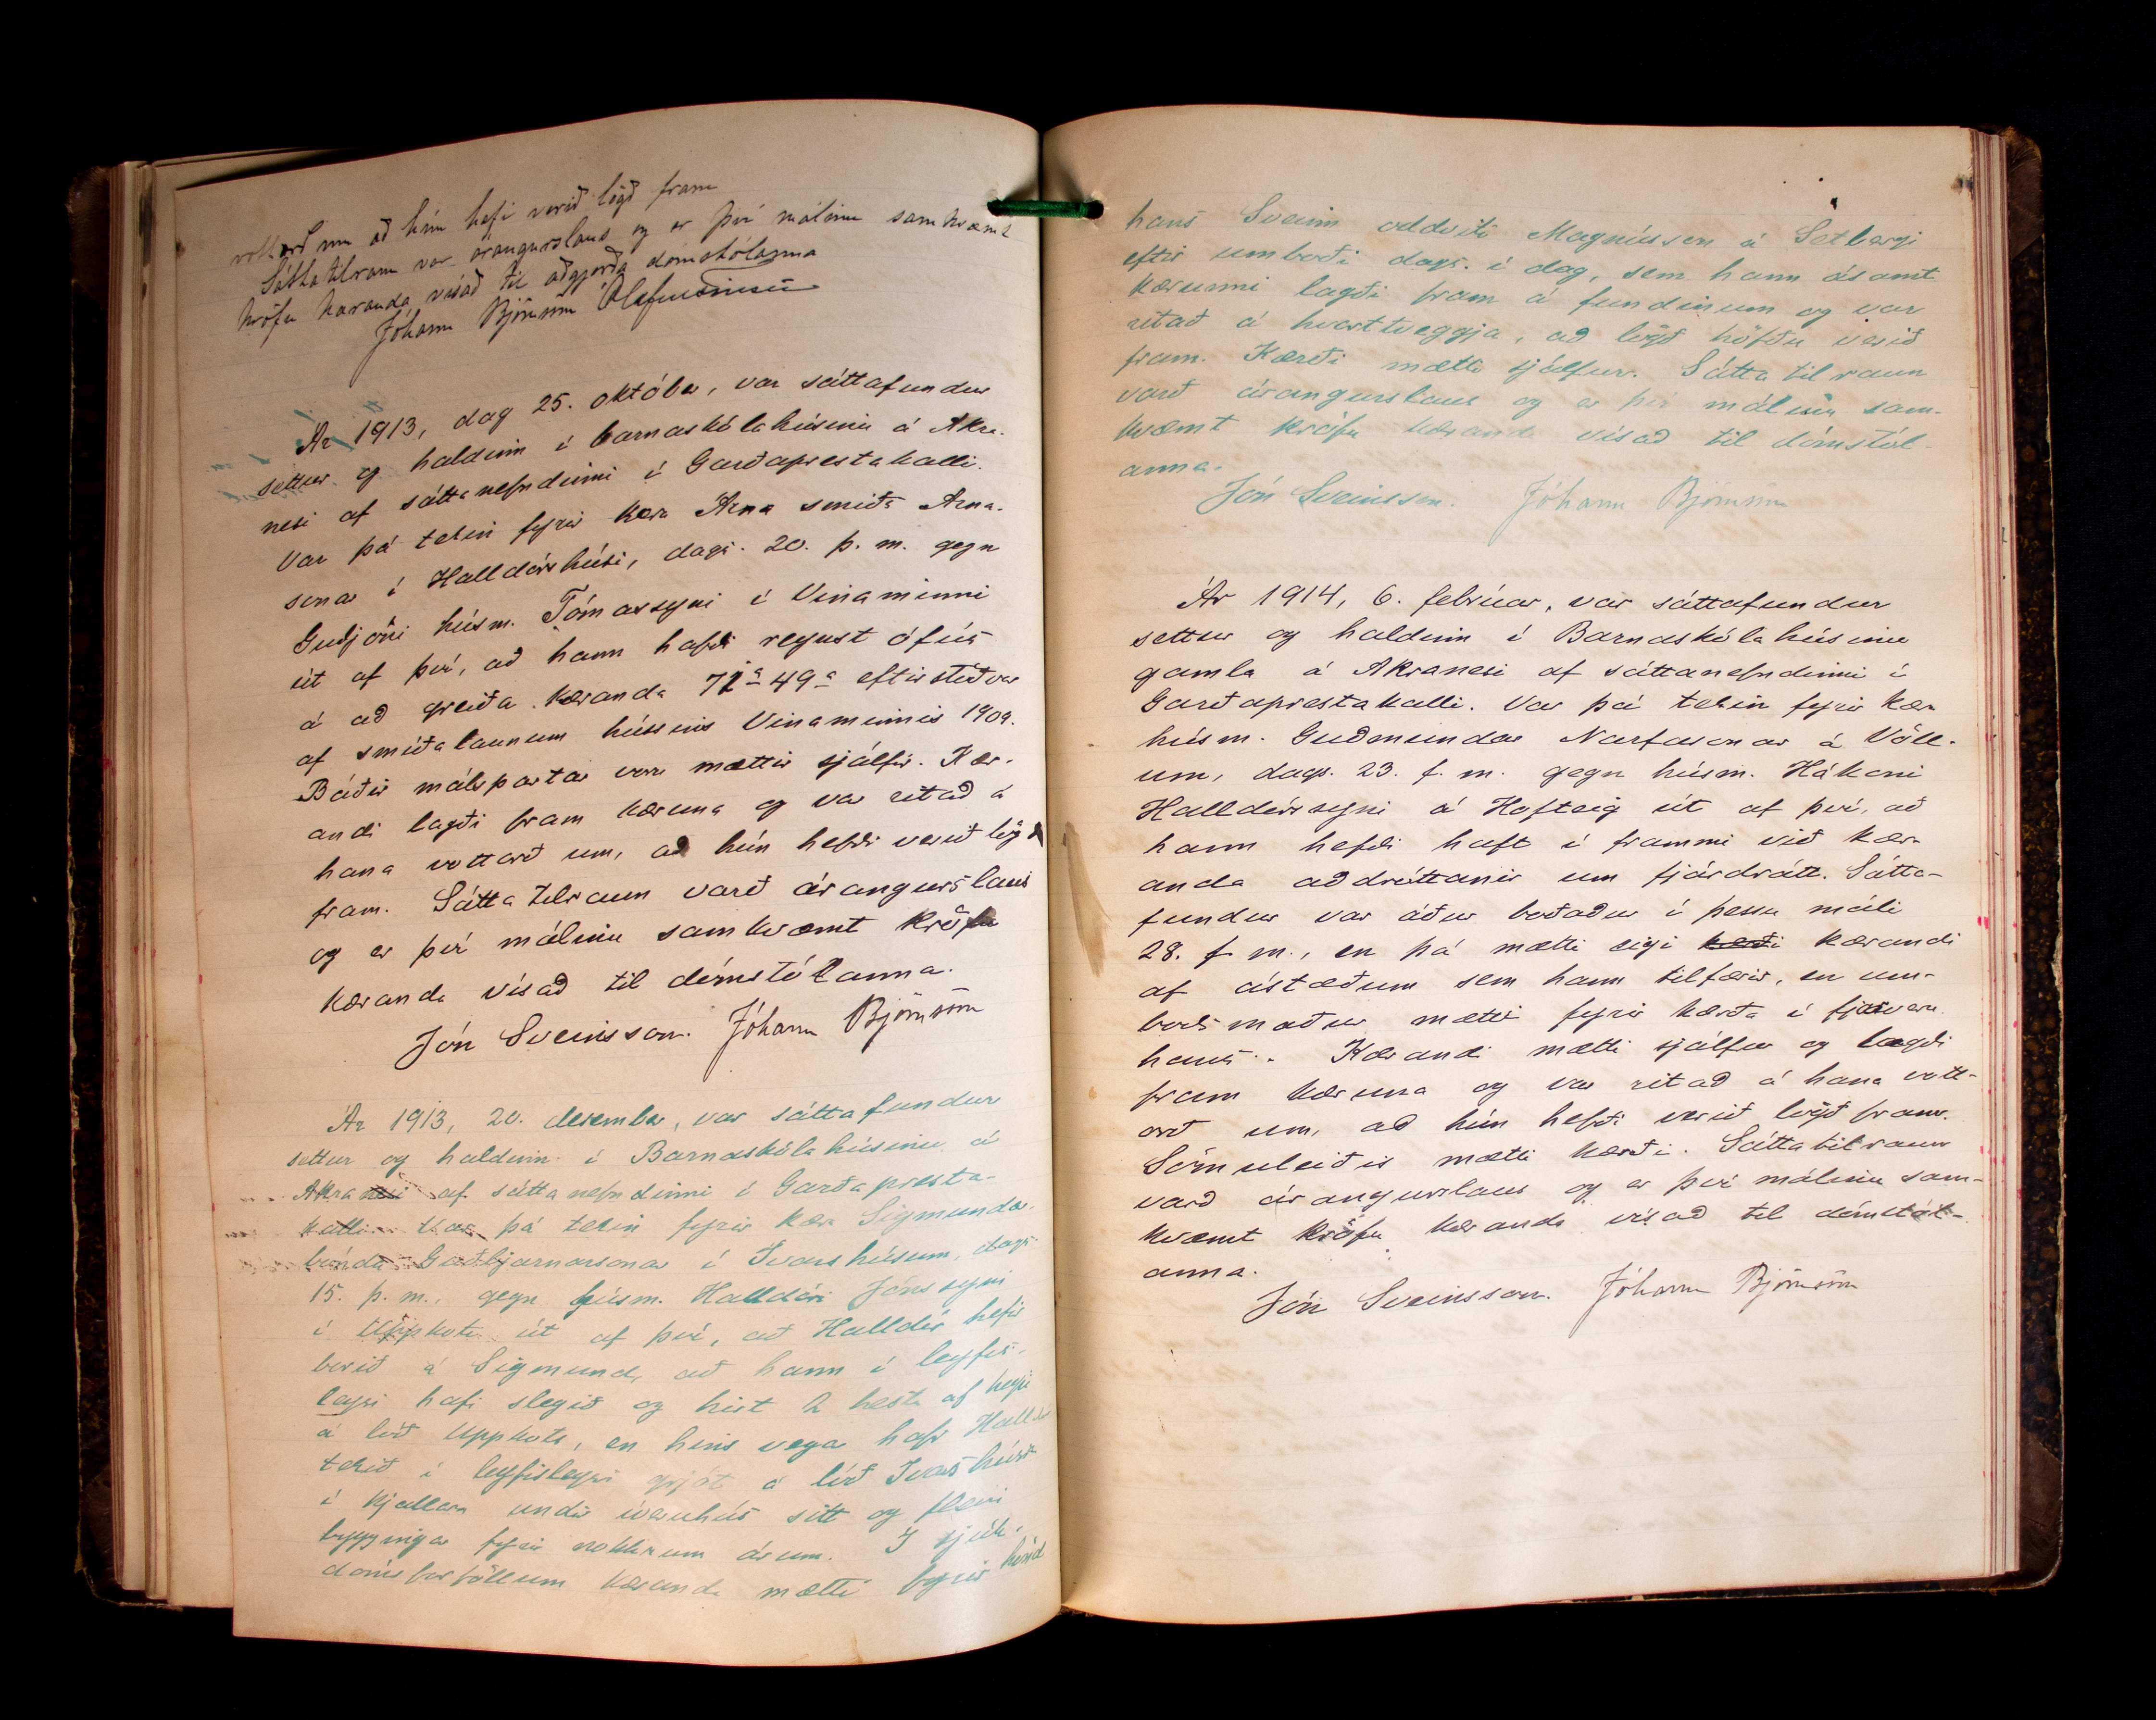 vottorð um að hún hafi verið lögð fram
Sáttatilraun var árangurslaus og er því málinu samkvæmt
kröfu kæranda vísað til aðgjörða dómstólanna
Jóhann Björnsson
Ár 1913, dag 25. október, var sáttafundur
settur og haldinn í barnaskólahúsinu á Akra-
nesi af sáttanefndinni í Garðaprestakalli.
Var þá tekin fyrir kæra Árna smiðs Árna-
sonar í Halldórshúsi, dags. 20. þ. m. gegn
Guðjóni húsm. Tómassyni í Vinaminni
út af því, að hann hafði reynst ófús
á að greiða kæranda 49 a eftirstöðvar
af smíðalaunum hússins Vinaminnis 1909.
Báðir málspartar voru mættir sjálfir. Kær-
andi lagði fram kæruna og var ritað á
hana vottorð um, að hún hefði verið lögð
fram. Sáttatilraun varð árangurslaus
og er því málinu samkvæmt kröfu
kæranda vísað til dómstólanna.
Jón Sveinsson. Jóhann Björnsson
Ár 1913, 20. desember, var sáttafundur
settur og haldinn í Barnaskólahúsinu á
Akranesi af sáttanefndinni í Garðapresta-
kalli. Var þá tekin fyrir kæra Sigmundar
bónda Guðbjarnarsonar í Ívarshúsum, dags.
15. þ. m., gegn húsm. Halldóri Jónssyni
í Uppkoti út af því, að Halldór hefir
borið á Sigmund, að hann í leyfis-
leysi hafi slegið og hirt 2 hesta af heyi
á lóð Uppkots, en hins vegar hafi Halldór
tekið í leyfisleysi grjót á lóð Ívarshúsa
í kjallara undir íveruhús sitt og fleiri
byggingar fyrir nokkrum árum. Í sjúk-
dómsforföllum kæranda mætti fyrir hönd
hans Sveinn oddviti Magnússon á Setbergi
eftir umboði dags. í dag, sem hann ásamt
kærunni lagði fram á fundinum og var
ritað á hvorttveggja, að lögð höfðu verið
fram. Kærði mætti sjálfur. Sáttatilraun
varð árangurslaus og er því málinu sam-
kvæmt kröfu kæranda vísað til dómstól-
anna.
Jón Sveinsson. Jóhann Björnsson
Ár 1914, 6. febrúar, var sáttafundur
settur og haldinn í Barnaskólahúsinu
gamla á Akranesi af sáttanefndinni í
Garðaprestakalli. Var þá tekin fyrir kæra
húsm. Guðmundar Narfasonar á Völl-
um, dags. 23. f. m. gegn húsm. Hákoni
Halldórssyni á Hofteig út af því, að
hann hefði haft í frammi við kær-
anda aðdróttanir um fjárdrátt. Sátta-
fundur var áður boðaður í þessu máli
28. f. m., en þá mætti eigi kærði kærandi
af ástæðum sem hann tilfærir, en um-
boðsmaður mætti fyrir kærða í fjarveru
hans. Kærandi mætti sjálfur og lagði
fram kæruna og var ritað á hana vott-
orð um, að hún hefði verið lögð fram.
Sömuleiðis mætti kærði. Sáttatilraun
varð árangurslaus og er því málinu sam-
kvæmt kröfu kæranda vísað til dómstól-
anna.
Jón Sveinsson. Jóhann Björnsson